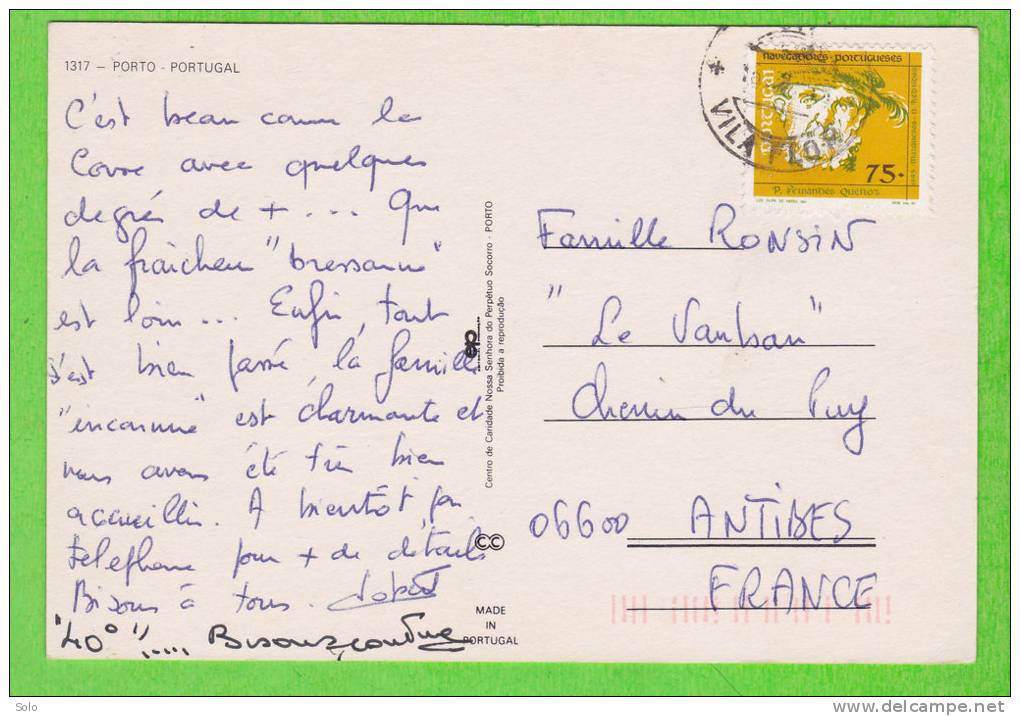 1317 – PORTO - PORTUGAL
C'est beau comme la
Corse avec quelques
degrés de + ... Que
la fraîcheur "bressanne"
est loin ... Enfin, tout
s'est bien passé, la famille
"inconnue" est charmante et
nous avons été très bien
accueillis. A bientôt par
telephone pour + de détails
Bisous à tous.
"40°".... Bisous
Centro de Caridade Nossa Senhora do Perpétuo Socorro - PORTO
Proibida a reprodução
ep
CC
MADE
IN
PORTUGAL
VILA FLOR
navegadores portugueses
portugal
75.
P. Fernandes Queiroz
Famille RONSIN
"Le Vauban"
Chemin du Puy
06600 ANTIBES
FRANCE
Solo
www.delcampe.net